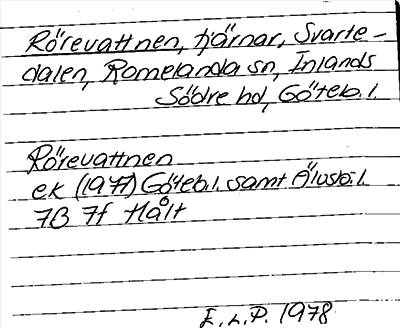 Rörevattnen, tjärnar, Svarte-
dalen, Romelanda sn, Inlands
Södre hd, Göteb. l.
Rörevattnen
ek (1977) Göteb. l. samt Älvsb. l.
7B 7f Hålt
E.L.P. 1978